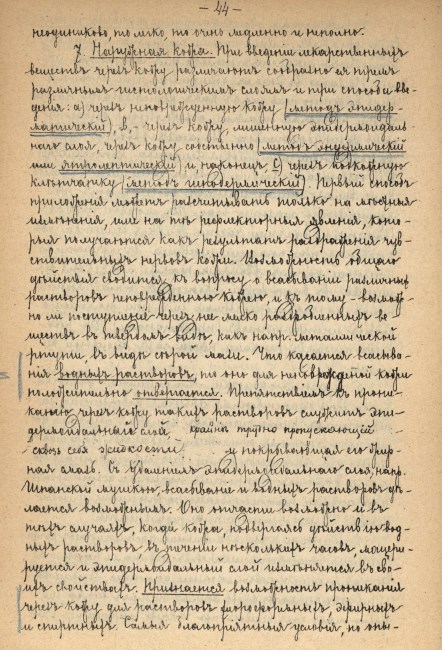 — 44 —
неодинаково, то легко, то очень медленно и неполно.
7. Наружная кожа. При введеніи лекарственныхъ
веществъ черезъ кожу различаютъ сообразно ея тремъ
различнымъ гистологическимъ слоямъ и три способа вве-
денія: а) черезъ неповрежденную кожу (методъ эпидер-
матическій), в,- черезъ кожу, лишенную эпидермоидаль-
наго слоя, черезъ кожу собственно (методъ эндермическій
или ятролептическій) и наконецъ С) черезъ подкожную
клѣтчатку (методъ гиподермическій). Первый способъ
приложенія можетъ разсчитывать только на мѣстныя
измѣненія, или на тѣ рефлекторныя явленія, кото-
рыя получаются какъ результатъ раздраженія чув-
ствительныхъ нервовъ кожи. Возможность общаго
дѣйствія сводится къ вопросу о всасываніи различныхъ
растворовъ неповрежденною кожею, и къ тому - возмож-
но ли поступленіе черезъ нее мелко раздробленныхъ ве-
ществъ въ твердомъ видѣ, какъ напр. металлической
ртути въ видѣ сѣрой мази. Что касается всасыва-
нія водныхъ растворовъ, то оно для неповрежденой кожи
положительно отвергается. Препятствіемъ къ проник-
канію черезъ кожу такихъ растворовъ служитъ эпи-
дермоидальнаго слой крайнѣ трудно пропускающей
сквозь себя жидкостей и покрывающая его жир-
ная смазь. Съ удаленіемъ эпидермоидальнаго слоя, напр.
Шпанской мушкою, всасываніе и водныхъ растворовъ дѣ-
лается возможнымъ. Оно отчасти возможно и въ
тѣхъ случаяхъ, когда кожа, подвергаясь дѣйствію вод-
ныхъ растворовъ, въ теченіи нѣсколькихъ часовъ, мацери-
руется и эпидермоидальный слой измѣняется въ сво-
ихъ свойствахъ. Признается возможность проникканія
черезъ кожу для растворовъ хлороформныхъ, эфирныхъ
и спиртныхъ. Самыя благопріятныя условія, по опы-